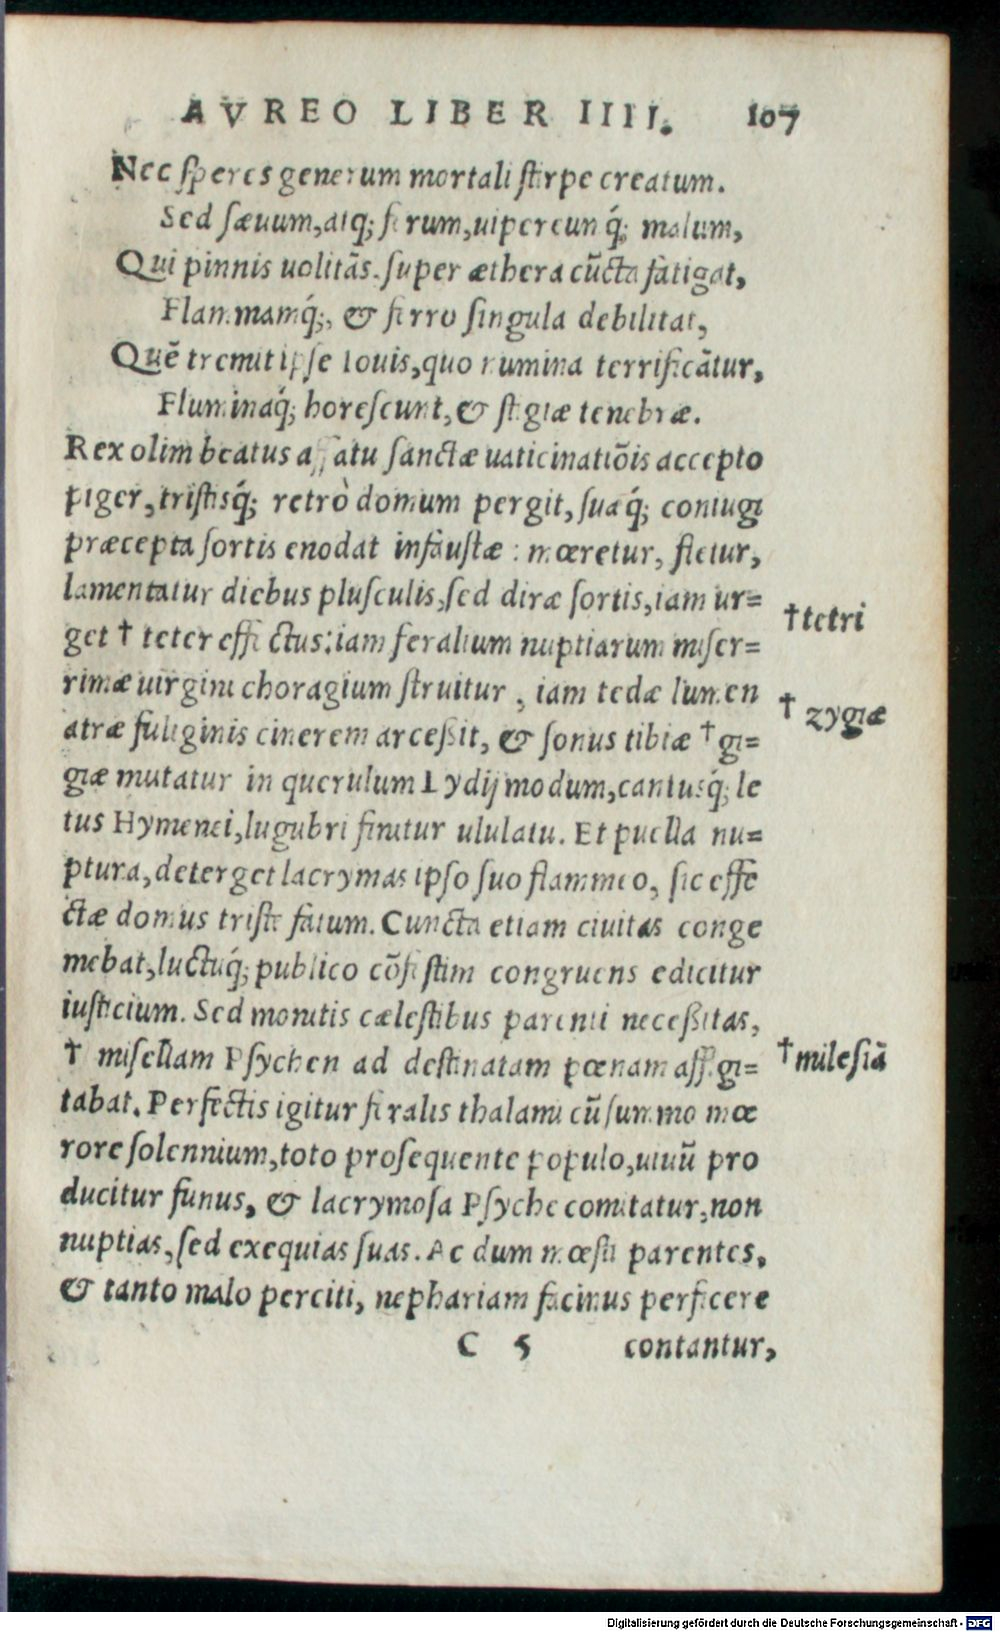 AVREO LIBER IIII. 107
Nec speres generum mortali stirpe creatum.
Sed sæuum, atq́; ferum, uipereumq́; malum,
Qui pinnis uolitãs super æthera cũcta fatigat,
Flammamq́;, & ferro singula debilitat,
Quẽ tremit ipse Iouis, quo numina terrificãtur,
Fluminaq́; horescunt, & stigiæ tenebræ.
Rex olim beatus affatu sanctæ uaticinatiõis accepto
piger, tristisq́; retrò domum pergit, suaq́; coniugi
præcepta sortis enodat infaustæ: mœretur, fletur,
lamentatur diebus plusculis, sed diræ sortis, iam ur=
get † teter effectus: iam feralium nuptiarum miser=
†tetri
rimæ uirgini choragium struitur, iam tedæ lumen
atræ fuliginis cinerem arceßit, & sonus tibiæ † gi=
† zygiæ
giæ mutatur in querulum Lydij modum, cantusq́; le
tus Hymenei, lugubri finitur ululatu. Et puella nu=
ptura, deterget lacrymas ipso suo flammeo, sic effe
ctæ domus triste fatum. Cuncta etiam ciuitas conge
mebat, luctuq́; publico cõfestim congruens edicitur
iusticium. Sed monitis cælestibus parenti neceßitas,
† misellam Psychen ad destinatam pœnam efflagi=
†milesiã
tabat. Perfectis igitur feralis thalami cũ summo mœ
rore solennium, toto prosequente populo, uiuũ pro
ducitur funus, & lacrymosa Psyche comitatur, non
nuptias, sed exequias suas. Ac dum mœsti parentes,
& tanto malo perciti, nephariam facinus perficere
C 5 contantur,
Digitalisierung gefördert durch die Deutsche Forschungsgemeinschaft - DFG